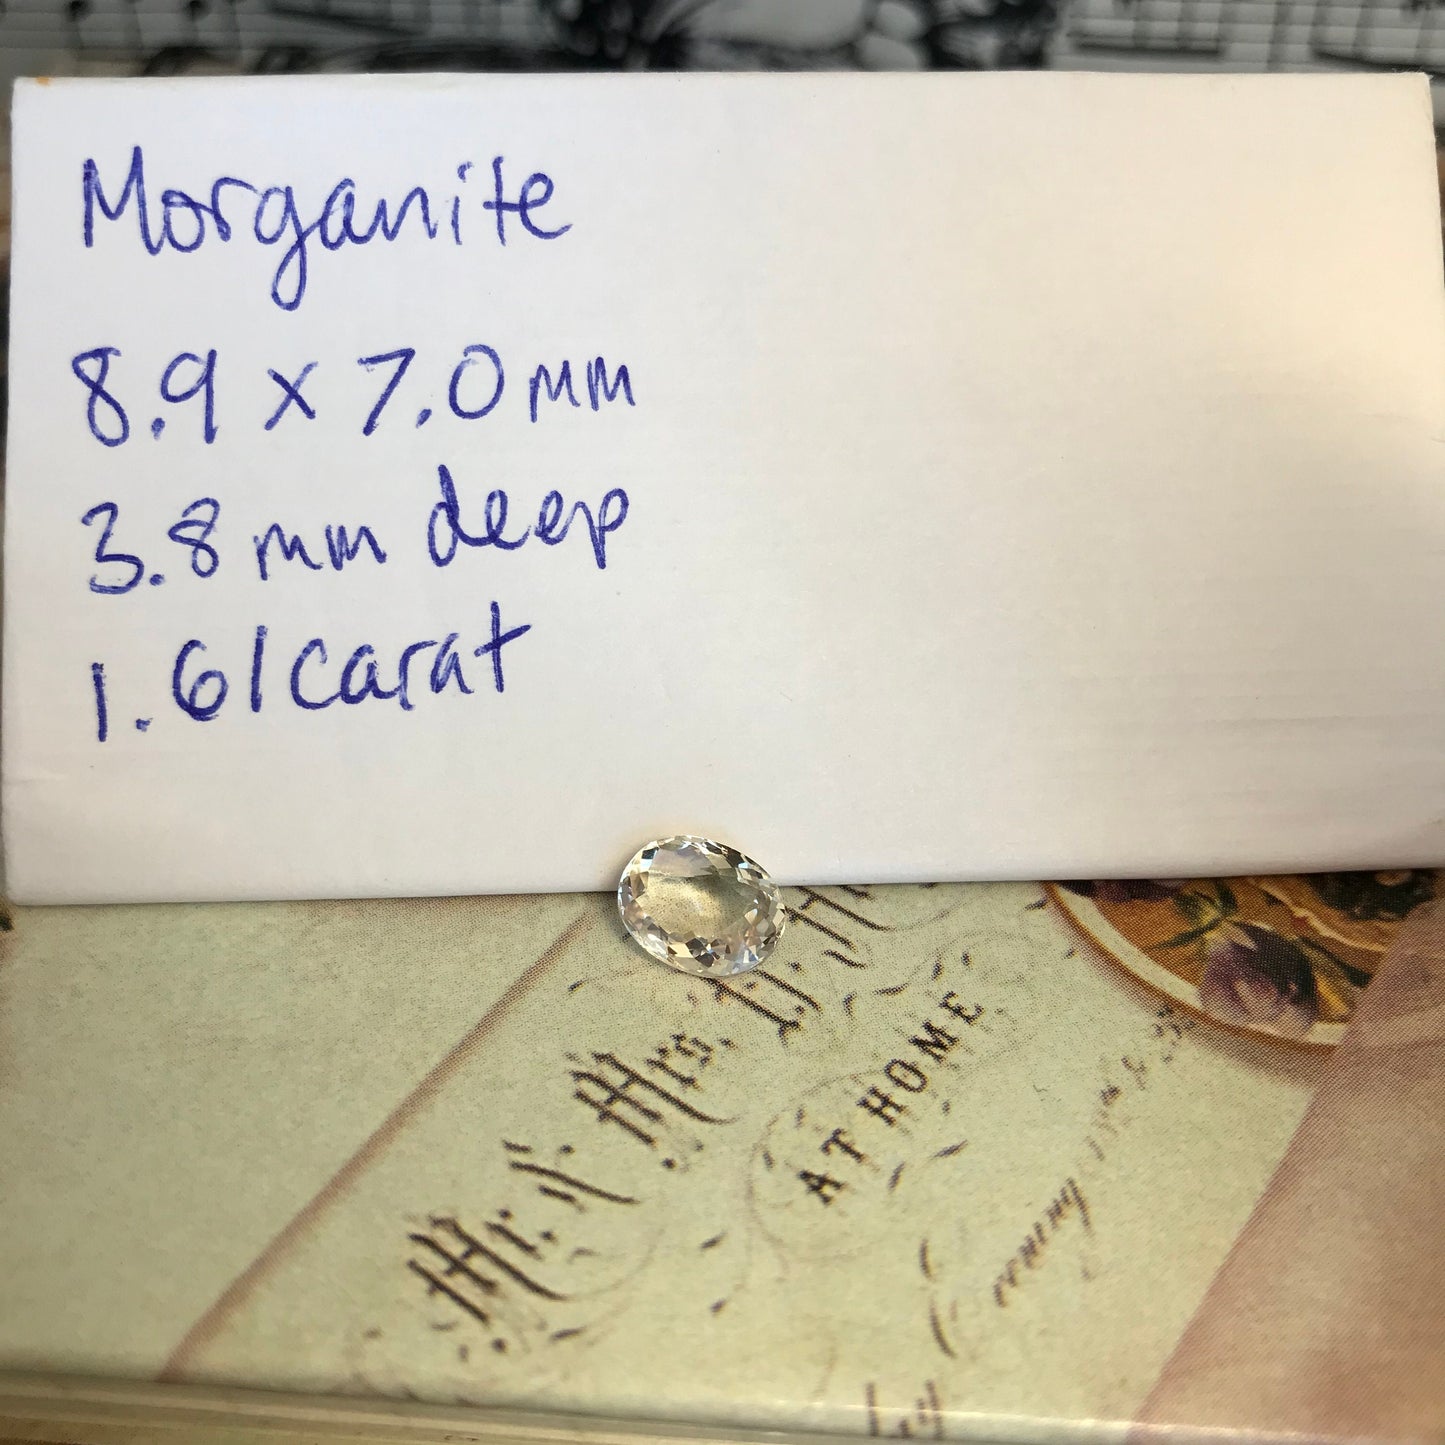 Morganite
8.9 x 7.0mm
3.8mm deep
1.61carat
Mr. & Mrs.
AT HOME